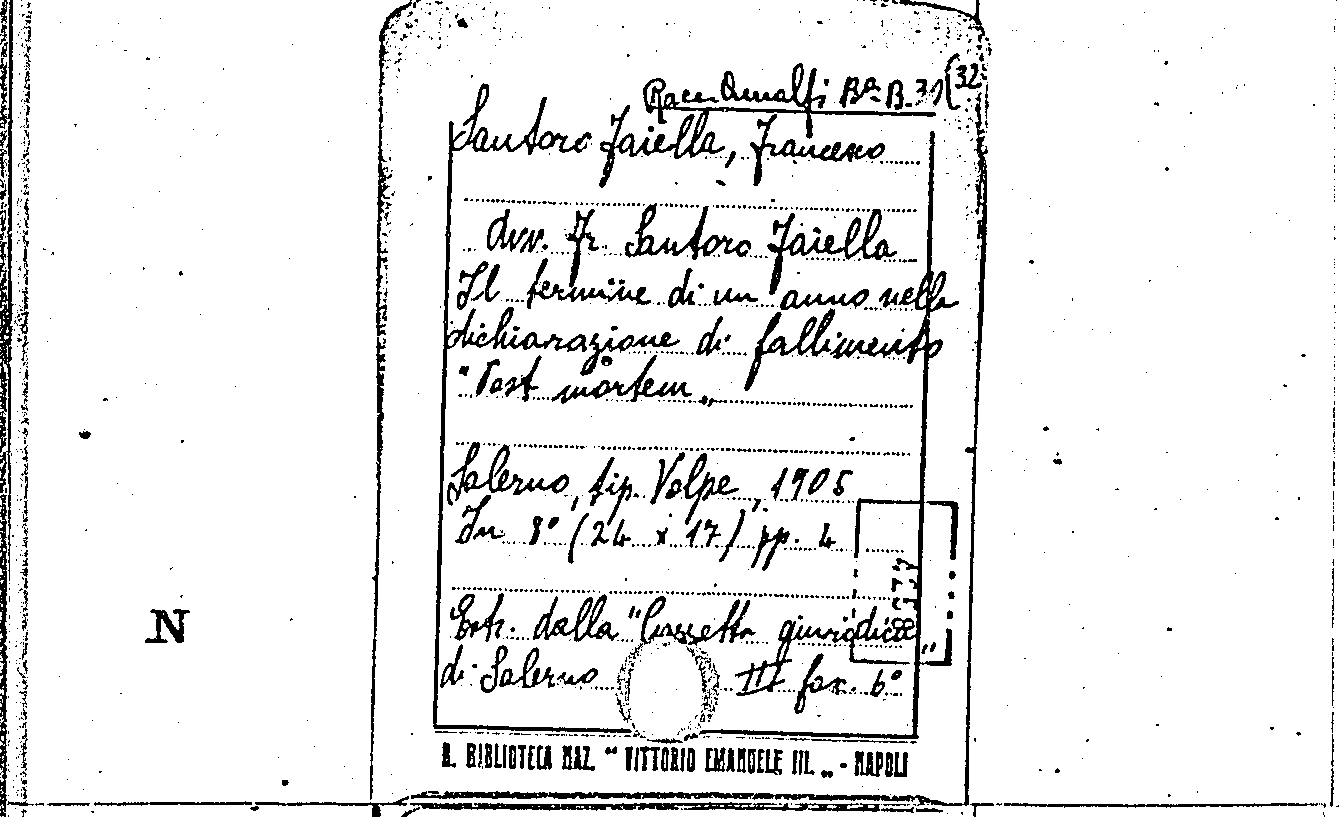 Racc. Amalfi Bª B. 30 (32
Santoro Faiella, Francesco
Avv. Fr. Santoro Faiella
Il termine di un anno nella
dichiarazione di fallimento
"Post mortem„
Salerno, tip. Volpe, 1905
In 8° (24 x 17) pp. 4
Estr. dalla "Gazzetta giuridica„
di Salerno III fax. 6°
N
R. BIBLIOTECA NAZ. “ VITTORIO EMANUELE III. „ - NAPOLI